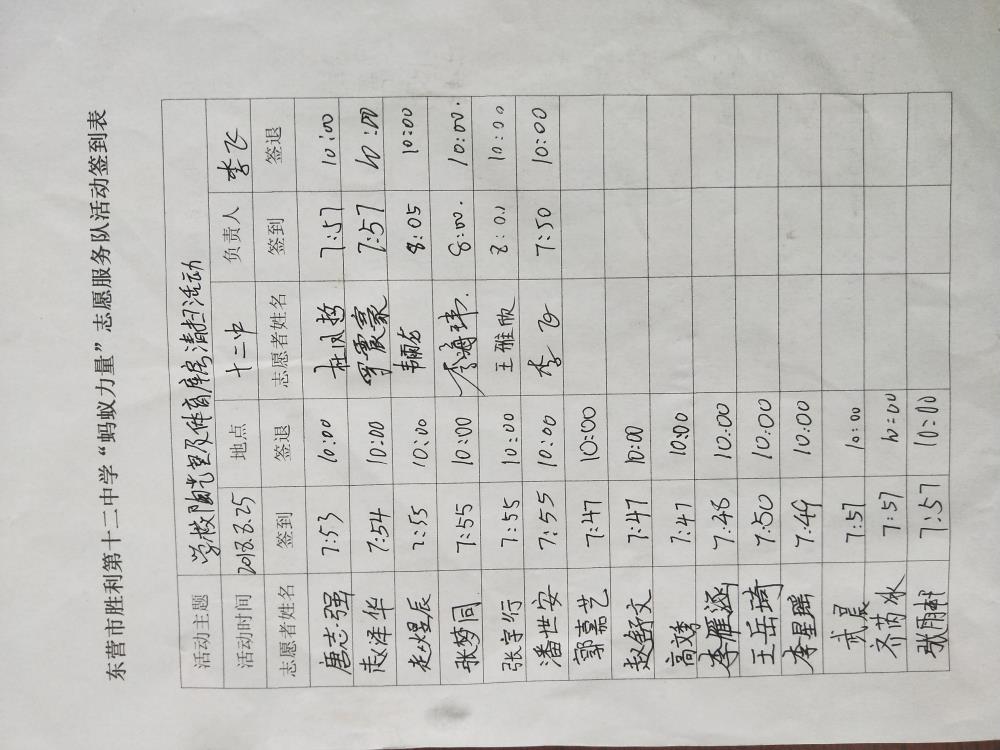 东营市胜利第十二中学“蚂蚁力量”志愿服务队活动签到表
活动主题 学校陶艺室及体育库房清扫活动
活动时间 2018.8.25 地点 十二中 负责人 李飞
志愿者姓名 签到 签退 志愿者姓名 签到 签退
唐志强 7:53 10:00 7:57 10:00
7:54 10:00 罗震豪 7:57 10:00
7:55 10:00 韩雨龙 8:05 10:00
张梦同 7:55 10:00 李海玮. 8:00. 10:00.
张宇行 7:55 10:00 王雅欣 8:01 10:00
潘世安 7:55 10:00 李飞 7:50 10:00
郭嘉艺 7:47 10:00
赵舒文 7:47 10:00
7:47 10:00
李雁涵 7:48 10.00
王岳琦 7:50 10.00
李星瑶 7:49 10.00
武晨 7:57 10:00
齐芮冰 7:57 10:00
张雨彬 7:57 10:00